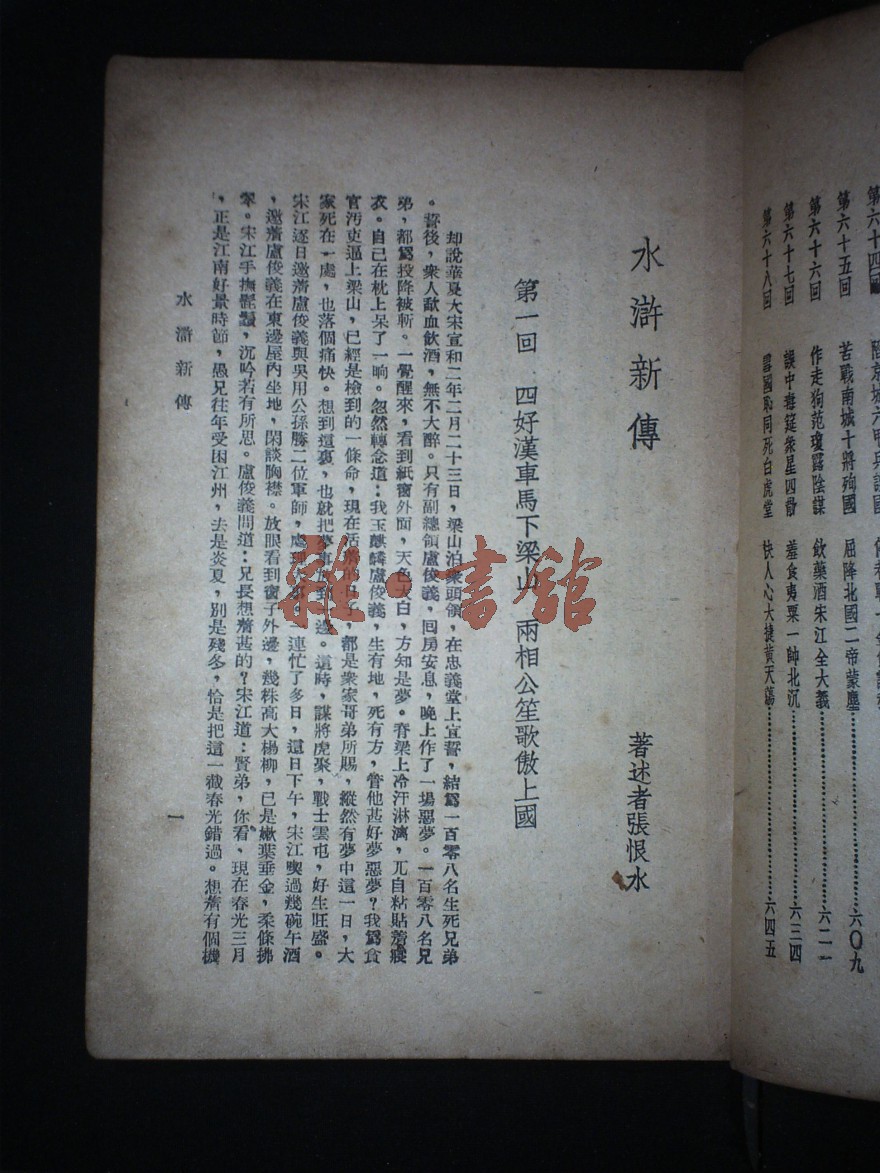 第六十四回 陷京城六甲兵誤國
第六十五回 苦戰南城十將殉國 屈降北國二帝蒙塵……六〇九
第六十六回 作走狗范瓊露陰謀 飲藥酒宋江全大義……六二一
第六十七回 誤中毒筵衆星四散 羞食夷粟一帥北沉……六三四
第六十八回 雪國恥同死白虎堂 快人心大捷黃天蕩……六四五
水滸新傳
著述者張恨水
第一回 四好漢車馬下梁山 兩相公笙歌傲上國
却說華夏大宋宣和二年二月二十三日，梁山泊衆頭領，在忠義堂上宣誓，結爲一百零八名生死兄弟
。誓後，衆人歃血飲酒，無不大醉。只有副總領盧俊義，囘房安息，晚上作了一場惡夢。一百零八名兄
弟，都爲投降被斬。一覺醒來，看到紙窗外面，天色大白，方知是夢。脊梁上冷汗淋漓，兀自粘貼着寢
衣。自己在枕上呆了一晌。忽然轉念道：我玉麒麟盧俊義，生有地，死有方，管他甚好夢惡夢？我爲貪
官汚吏逼上梁山，已經是檢到的一條命，現在活着的日子，都是衆家哥弟所賜，縱然有夢中這一日，大
家死在一處，也落個痛快。想到這裏，也就把夢事放到一邊。這時，謀將虎聚，戰士雲屯，好生旺盛。
宋江逐日邀着盧俊義與吳用公孫勝二位軍師，處理事。連忙了多日，這日下午，宋江喫過幾碗午酒
，邀着盧俊義在東邊屋內坐地，閑談胸襟。放眼看到窗子外邊，幾株高大楊柳，已是嫩葉垂金，柔條拂
翠。宋江手撫髭鬚，沉吟若有所思。盧俊義問道：兄長想着甚的？宋江道：賢弟，你看，現在春光三月
，正是江南好景時節，愚兄往年受困江州，去是炎夏，別是殘冬，恰是把這一截春光錯過。想着有個機
水滸新傳
一
雜·書館